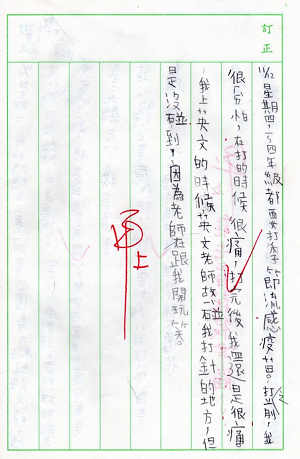 訂正
11/12星期四,一~四年級都要打季節流感疫苗,打之前,我
很怕,在打的時候很痛,打完後我還是很痛
,我上英文的時候英文老師故一碰我打針的地方,但
是沒碰到,因為老師在跟我開玩笑。
甲上